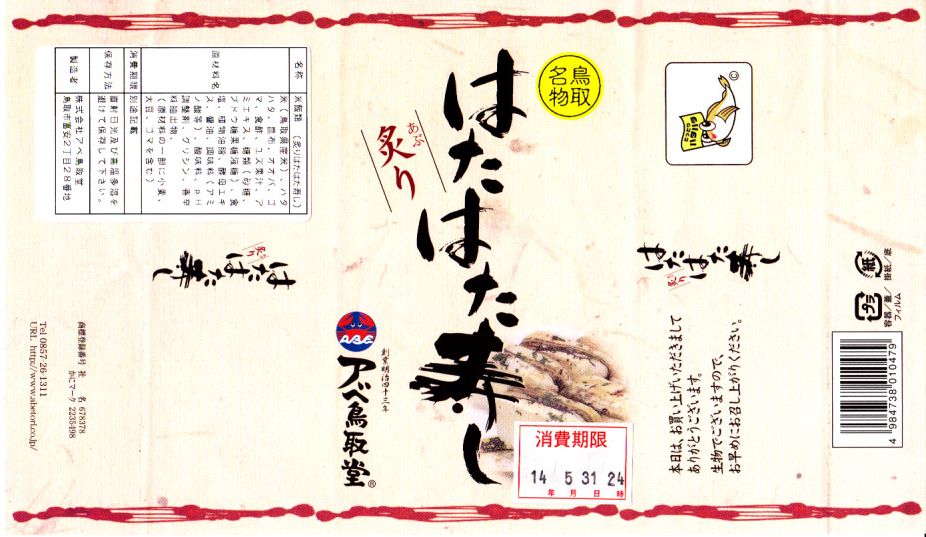 鳥取
名物
あぶ
炙り
はたはた寿し
ABE
創業明治四十三年
アベ鳥取堂®
消費期限
14 5 31 24
年 月 日 時
名称 米飯類 (炙りはたはた寿し)
原材料名 米(鳥取県産米)、ハタ
ハタ、昆布、オオバ、ゴ
マ、食酢、ユズ果汁、ア
ミエキス、糖類(砂糖、
ブドウ糖果糖液糖)、食
塩、植物油脂、酵母エキ
ス、醤油、調味料(アミ
ノ酸等)、酸味料、pH
調整剤、グリシン、香辛
料抽出物、
(原材料の一部に小麦、
大豆、ゴマを含む)
消費期限 別途記載
保存方法 直射日光及び高温多湿を
避けて保存して下さい。
製造者 株式会社アベ鳥取堂
鳥取市富安2丁目28番地
炙り
はたはた寿し
商標登録番号 社 名 678378
かにマーク 2235498
Tel 0857-26-1311
URL http://www.abetori.co.jp/
©
炙り
はたはた寿し
本日は、お買い上げいただきまして
ありがとうございます。
生物でございますので、
お早めにお召し上がりください。
紙
掛紙/底
プラ
容器/蓋/
フィルム
4 984738 010479